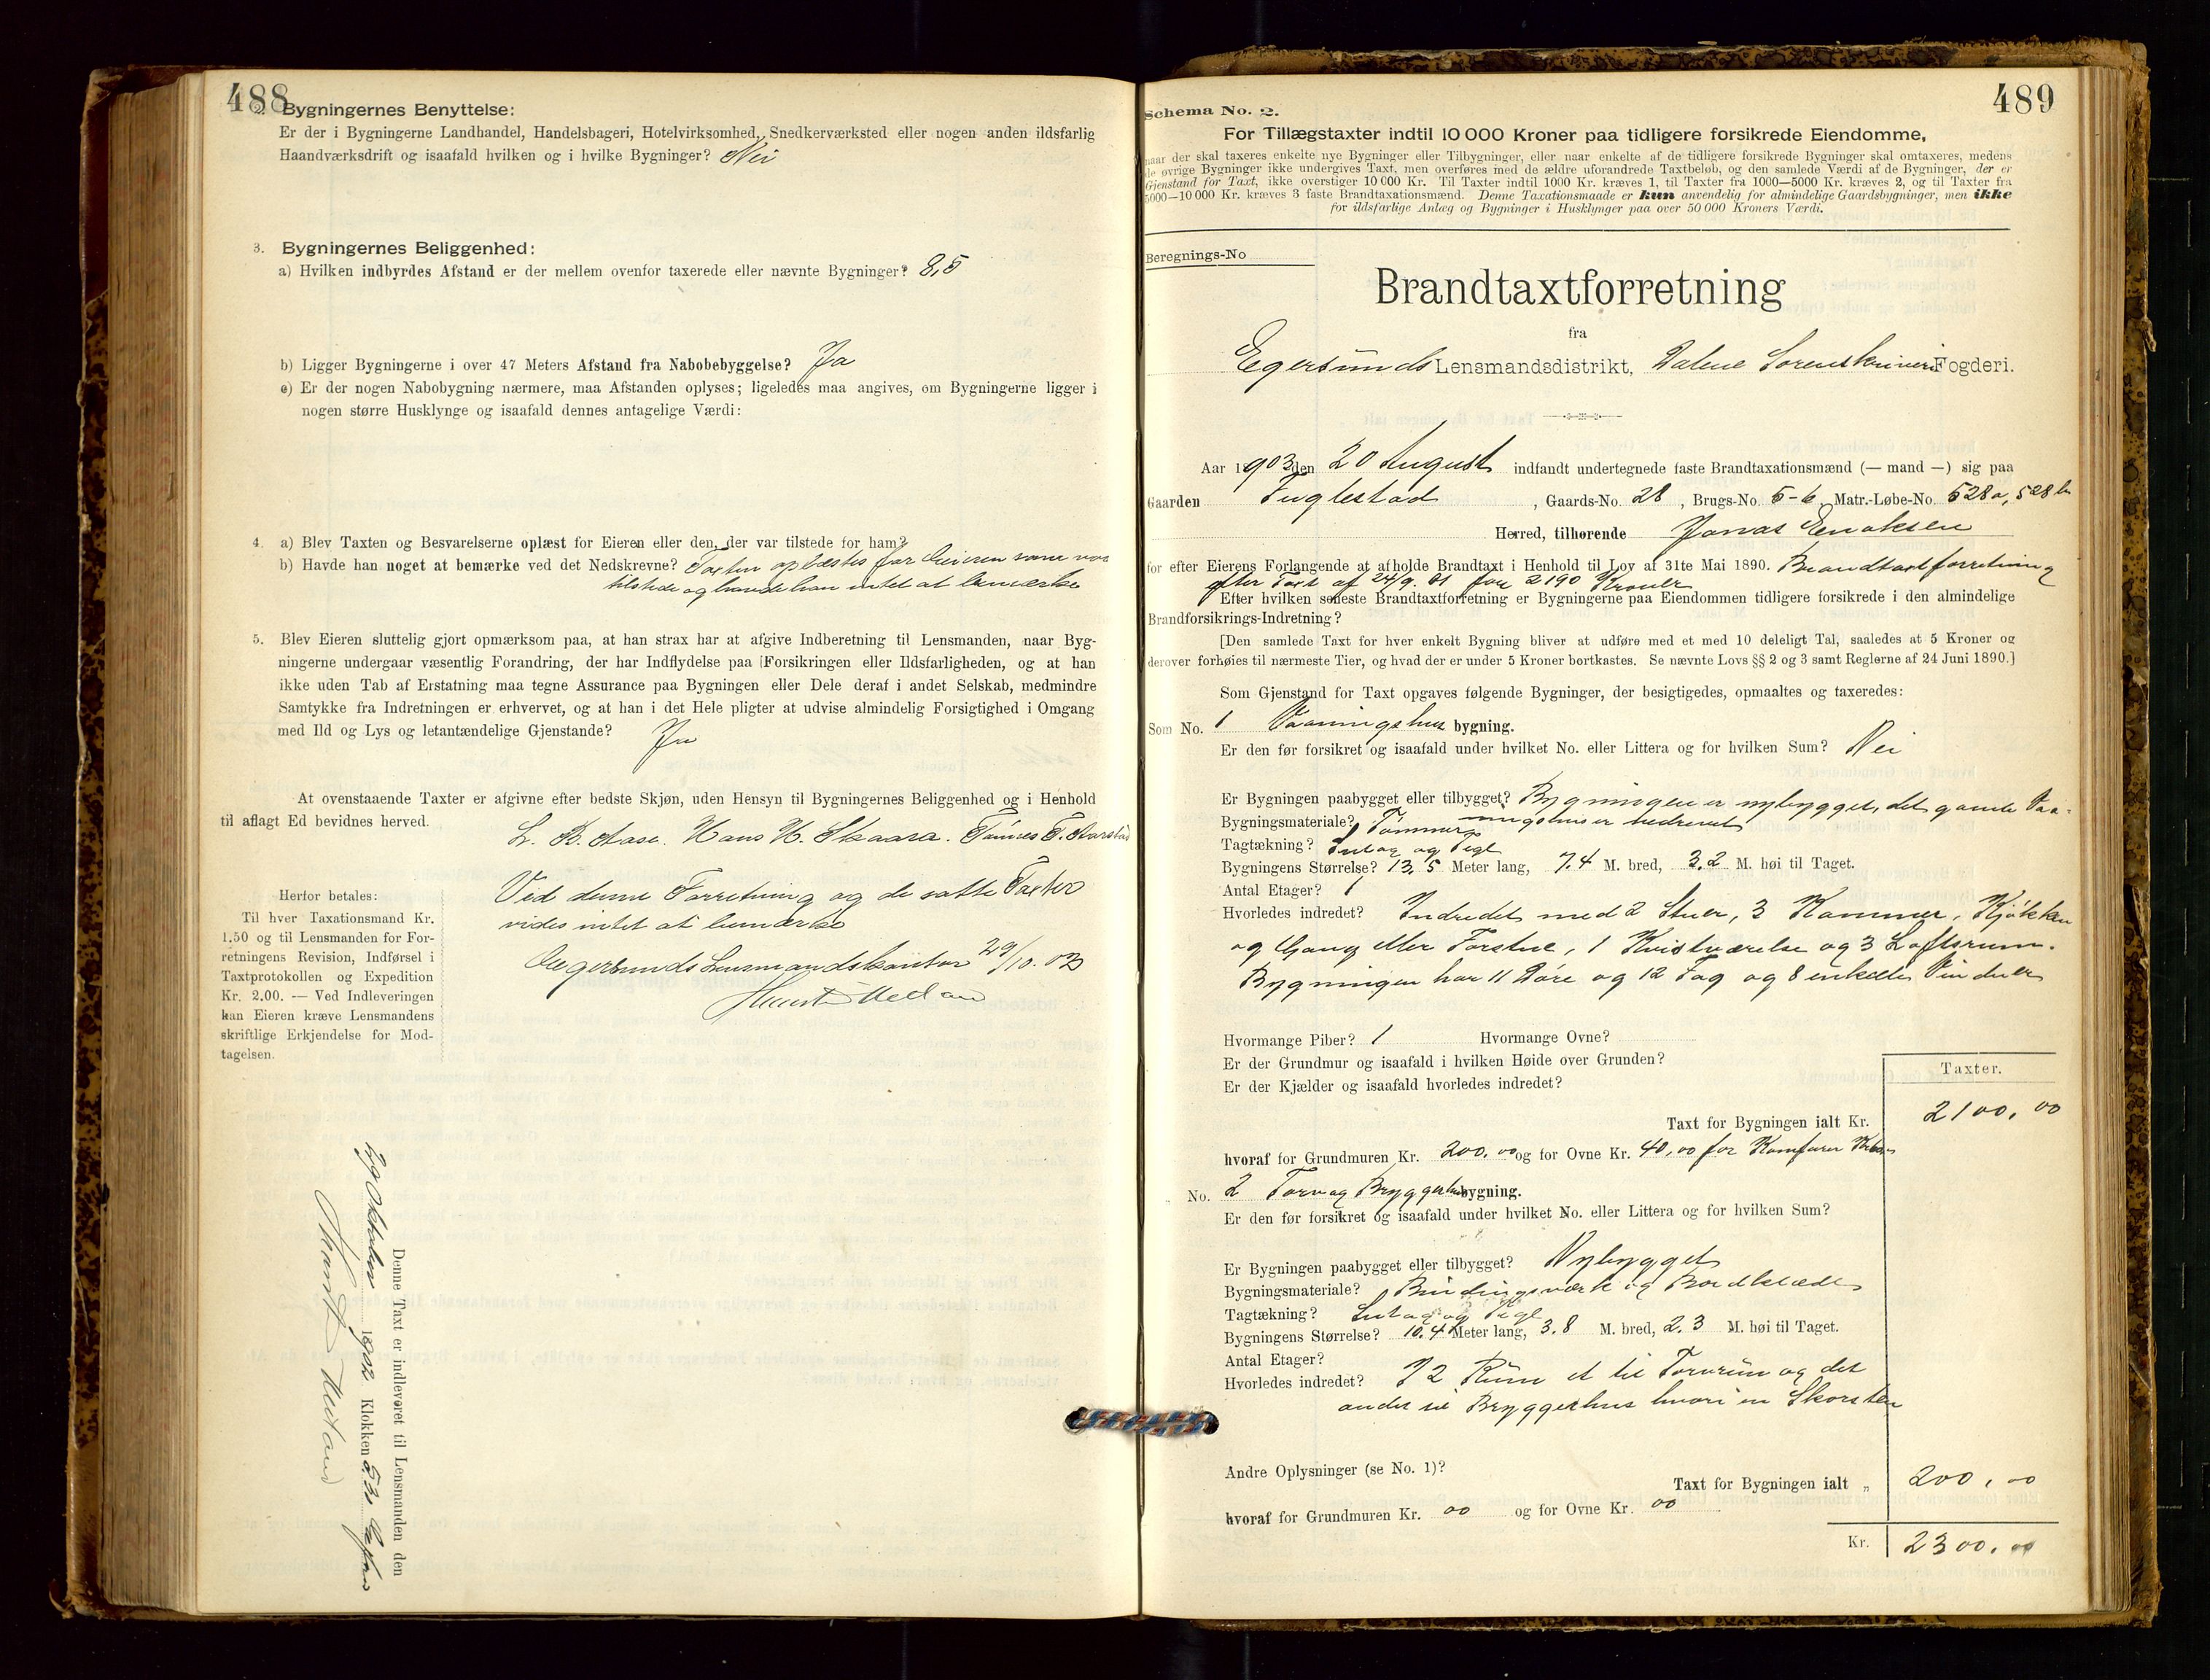 488
2. Bygningernes Benyttelse:
Er der i Bygningerne Landhandel, Handelsbageri, Hotelvirksomhed, Snedkerværksted eller nogen anden ildsfarlig
Haandværksdrift og isaafald hvilken og i hvilke Bygninger? Nei
3. Bygningernes Beliggenhed:
a) Hvilken indbyrdes Afstand er der mellem ovenfor taxerede eller nævnte Bygninger? 8,5
b) Ligger Bygningerne i over 47 Meters Afstand fra Nabobebyggelse? Ja
c) Er der nogen Nabobygning nærmere, maa Afstanden oplyses; ligeledes maa angives, om Bygningerne ligger i
nogen større Husklynge og isaafald dennes antagelige Værdi:
4. a) Blev Taxten og Besvarelserne oplæst for Eieren eller den, der var tilstede for ham?
b) Havde han noget at bemærke ved det Nedskrevne? Taxten oplæstes for Eieren som var
tilstede og havde han intet at bemærke
5. Blev Eieren sluttelig gjort opmærksom paa, at han strax har at afgive Indberetning til Lensmanden, naar Byg-
ningerne undergaar væsentlig Forandring, der har Indflydelse paa Forsikringen eller Ildsfarligheden, og at han
ikke uden Tab af Erstatning maa tegne Assurance paa Bygningen eller Dele deraf i andet Selskab, medmindre
Samtykke fra Indretningen er erhvervet, og at han i det Hele pligter at udvise almindelig Forsigtighed i Omgang
med Ild og Lys og letantændelige Gjenstande? Ja
At ovenstaaende Taxter er afgivne efter bedste Skjøn, uden Hensyn til Bygningernes Beliggenhed og i Henhold
til aflagt Ed bevidnes herved.
L. B. Aase. Hans H. Skaara. Tønnes T. Aarstad
Herfor betales:
Til hver Taxationsmand Kr.
1.50 og til Lensmanden for For-
retningens Revision, Indførsel i
Taxtprotokollen og Expedition
Kr. 2.00. — Ved Indleveringen
kan Eieren kræve Lensmandens
skriftlige Erkjendelse for Mod-
tagelsen.
Ved denne Forretning og de satte Taxter
vides intet at bemærke
Egersunds Lensmandskontor 29/10. 03
Denne Taxt er indleveret til Lensmanden den
Oktober 1903 Klokken
489
Schema No. 2.
For Tillægstaxter indtil 10 000 Kroner paa tidligere forsikrede Eiendomme,
naar der skal taxeres enkelte nye Bygninger eller Tilbygninger, eller naar enkelte af de tidligere forsikrede Bygninger skal omtaxeres, medens
de øvrige Bygninger ikke undergives Taxt, men overføres med de ældre uforandrede Taxtbeløb, og den samlede Værdi af de Bygninger, der er
Gjenstand for Taxt, ikke overstiger 10 000 Kr. Til Taxter indtil 1000 Kr. kræves 1, til Taxter fra 1000—5000 Kr. kræves 2, og til Taxter fra
5000—10 000 Kr. kræves 3 faste Brandtaxationsmænd. Denne Taxationsmaade er kun anvendelig for almindelige Gaardsbygninger, men ikke
for ildsfarlige Anlæg og Bygninger i Husklynger paa over 50 000 Kroners Værdi.
Beregnings-No
Brandtaxtforretning
fra
Egersunds Lensmandsdistrikt, Dalene Sorenskriveri Fogderi.
Aar 1903 den 20 August indfandt undertegnede faste Brandtaxationsmænd (— mand —) sig paa
Gaarden Fuglestad, Gaards-No. 28, Brugs-No. 5-6, Matr.-Løbe-No. 528a, 528b
Herred, tilhørende Jonas Enoksen
for efter Eierens Forlangende at afholde Brandtaxt i Henhold til Lov af 31te Mai 1890. Brandtaxtforretning
efter Taxt af 24/9. 01 for 2190 Kroner
Efter hvilken seneste Brandtaxtforretning er Bygningerne paa Eiendommen tidligere forsikrede i den almindelige
Brandforsikrings-Indretning?
[Den samlede Taxt for hver enkelt Bygning bliver at udføre med et med 10 deleligt Tal, saaledes at 5 Kroner og
derover forhøies til nærmeste Tier, og hvad der er under 5 Kroner bortkastes. Se nævnte Lovs §§ 2 og 3 samt Reglerne af 24 Juni 1890.]
Som Gjenstand for Taxt opgaves følgende Bygninger, der besigtigedes, opmaaltes og taxeredes:
Som No. 1 Vaaningshus bygning.
Er den før forsikret og isaafald under hvilket No. eller Littera og for hvilken Sum? Nei
Er Bygningen paabygget eller tilbygget? Bygningen er nybygget, det gamle Vaa-
ningshus er nedrevet
Bygningsmateriale? Tømmer
Tagtækning? Sutag og Tegl
Bygningens Størrelse? 13,5 Meter lang, 7.4 M. bred, 3.2 M. høi til Taget.
Antal Etager? 1
Hvorledes indredet? Indredet med 2 Stuer, 3 Kammer, Kjøkken
og Gang eller Forstue, 1 Kvistværelse og 3 Loftsrum.
Bygningen har 11 Døre og 12 Fag og 8 enkelte Vinduer
Hvormange Piber? 1 Hvormange Ovne?
Er der Grundmur og isaafald i hvilken Høide over Grunden?
Er der Kjælder og isaafald hvorledes indredet?
Taxter.
Taxt for Bygningen ialt Kr. 2100,00
hvoraf for Grundmuren Kr. 200,00 og for Ovne Kr. 40,00 for Komfurer
No. 2 Torv og Bryggerhus bygning.
Er den før forsikret og isaafald under hvilket No. eller Littera og for hvilken Sum?
Er Bygningen paabygget eller tilbygget? Nybygget
Bygningsmateriale? Bindingsværk og Bordklædt
Tagtækning? Sutag og Tegl
Bygningens Størrelse? 10.4 Meter lang, 3.8 M. bred, 2.3 M. høi til Taget.
Antal Etager?
Hvorledes indredet? I 2 Rum et til Torvrum og det
andet til Bryggerhus hvori en Skorsten
Andre Oplysninger (se No. 1)?
Taxt for Bygningen ialt „ 200,00
hvoraf for Grundmuren Kr. 00 og for Ovne Kr. 00
Kr. 2300,00